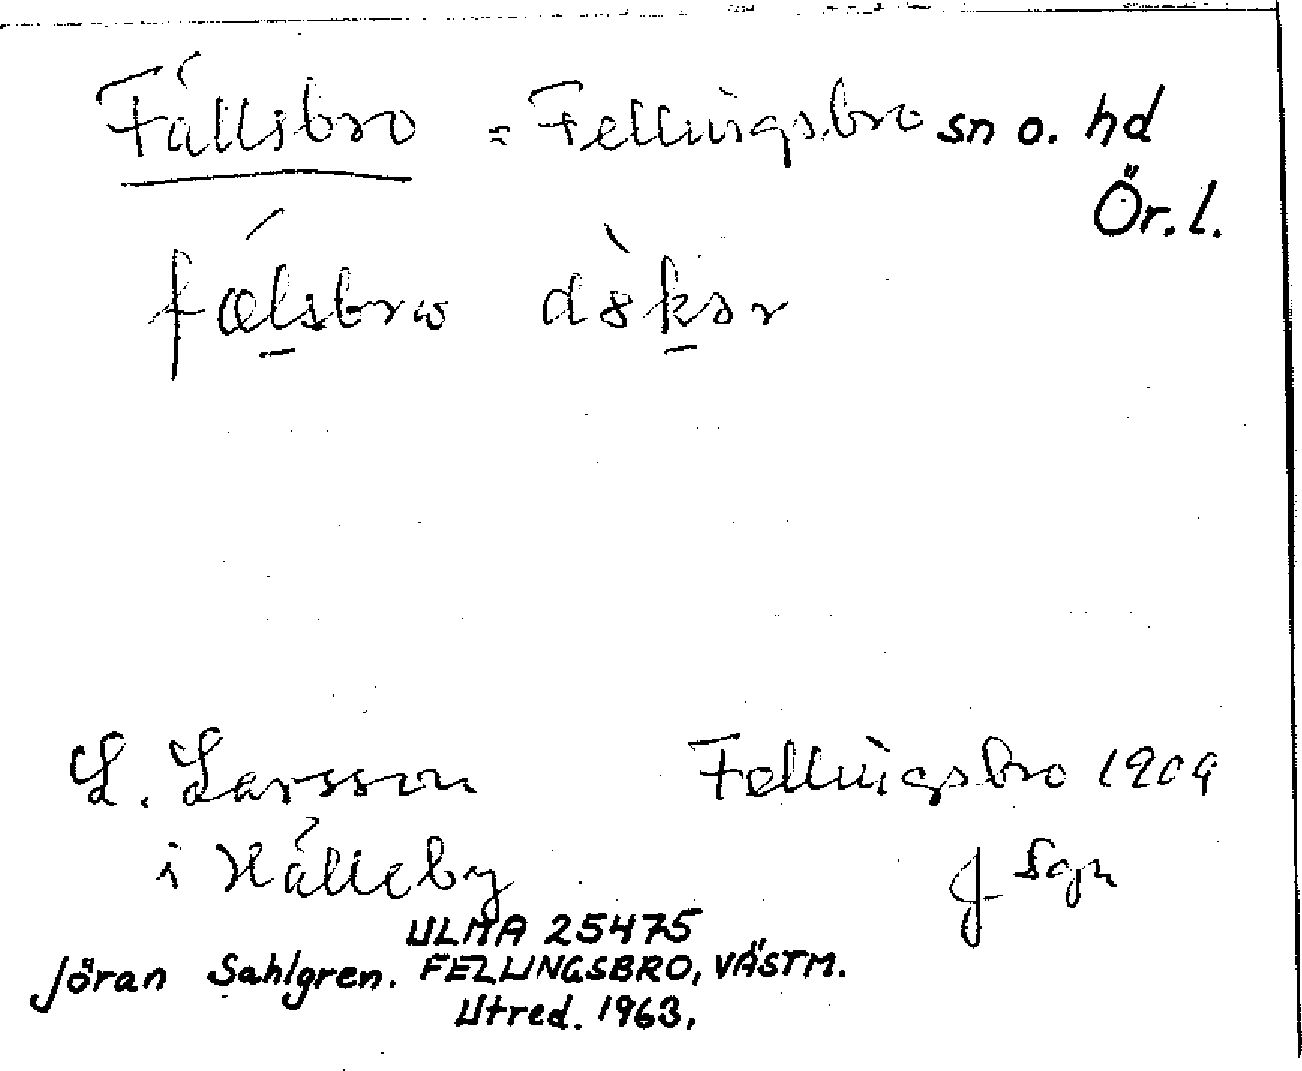 Fällsbro = Fellingsbro sn o. hd
Ör. l.
fælsbro
L. Larsson Fellingsbro 1909
i Hälleby J Sgn
ULMA 25475
Jöran Sahlgren. FELLINGSBRO, VÄSTM.
Utred. 1963.